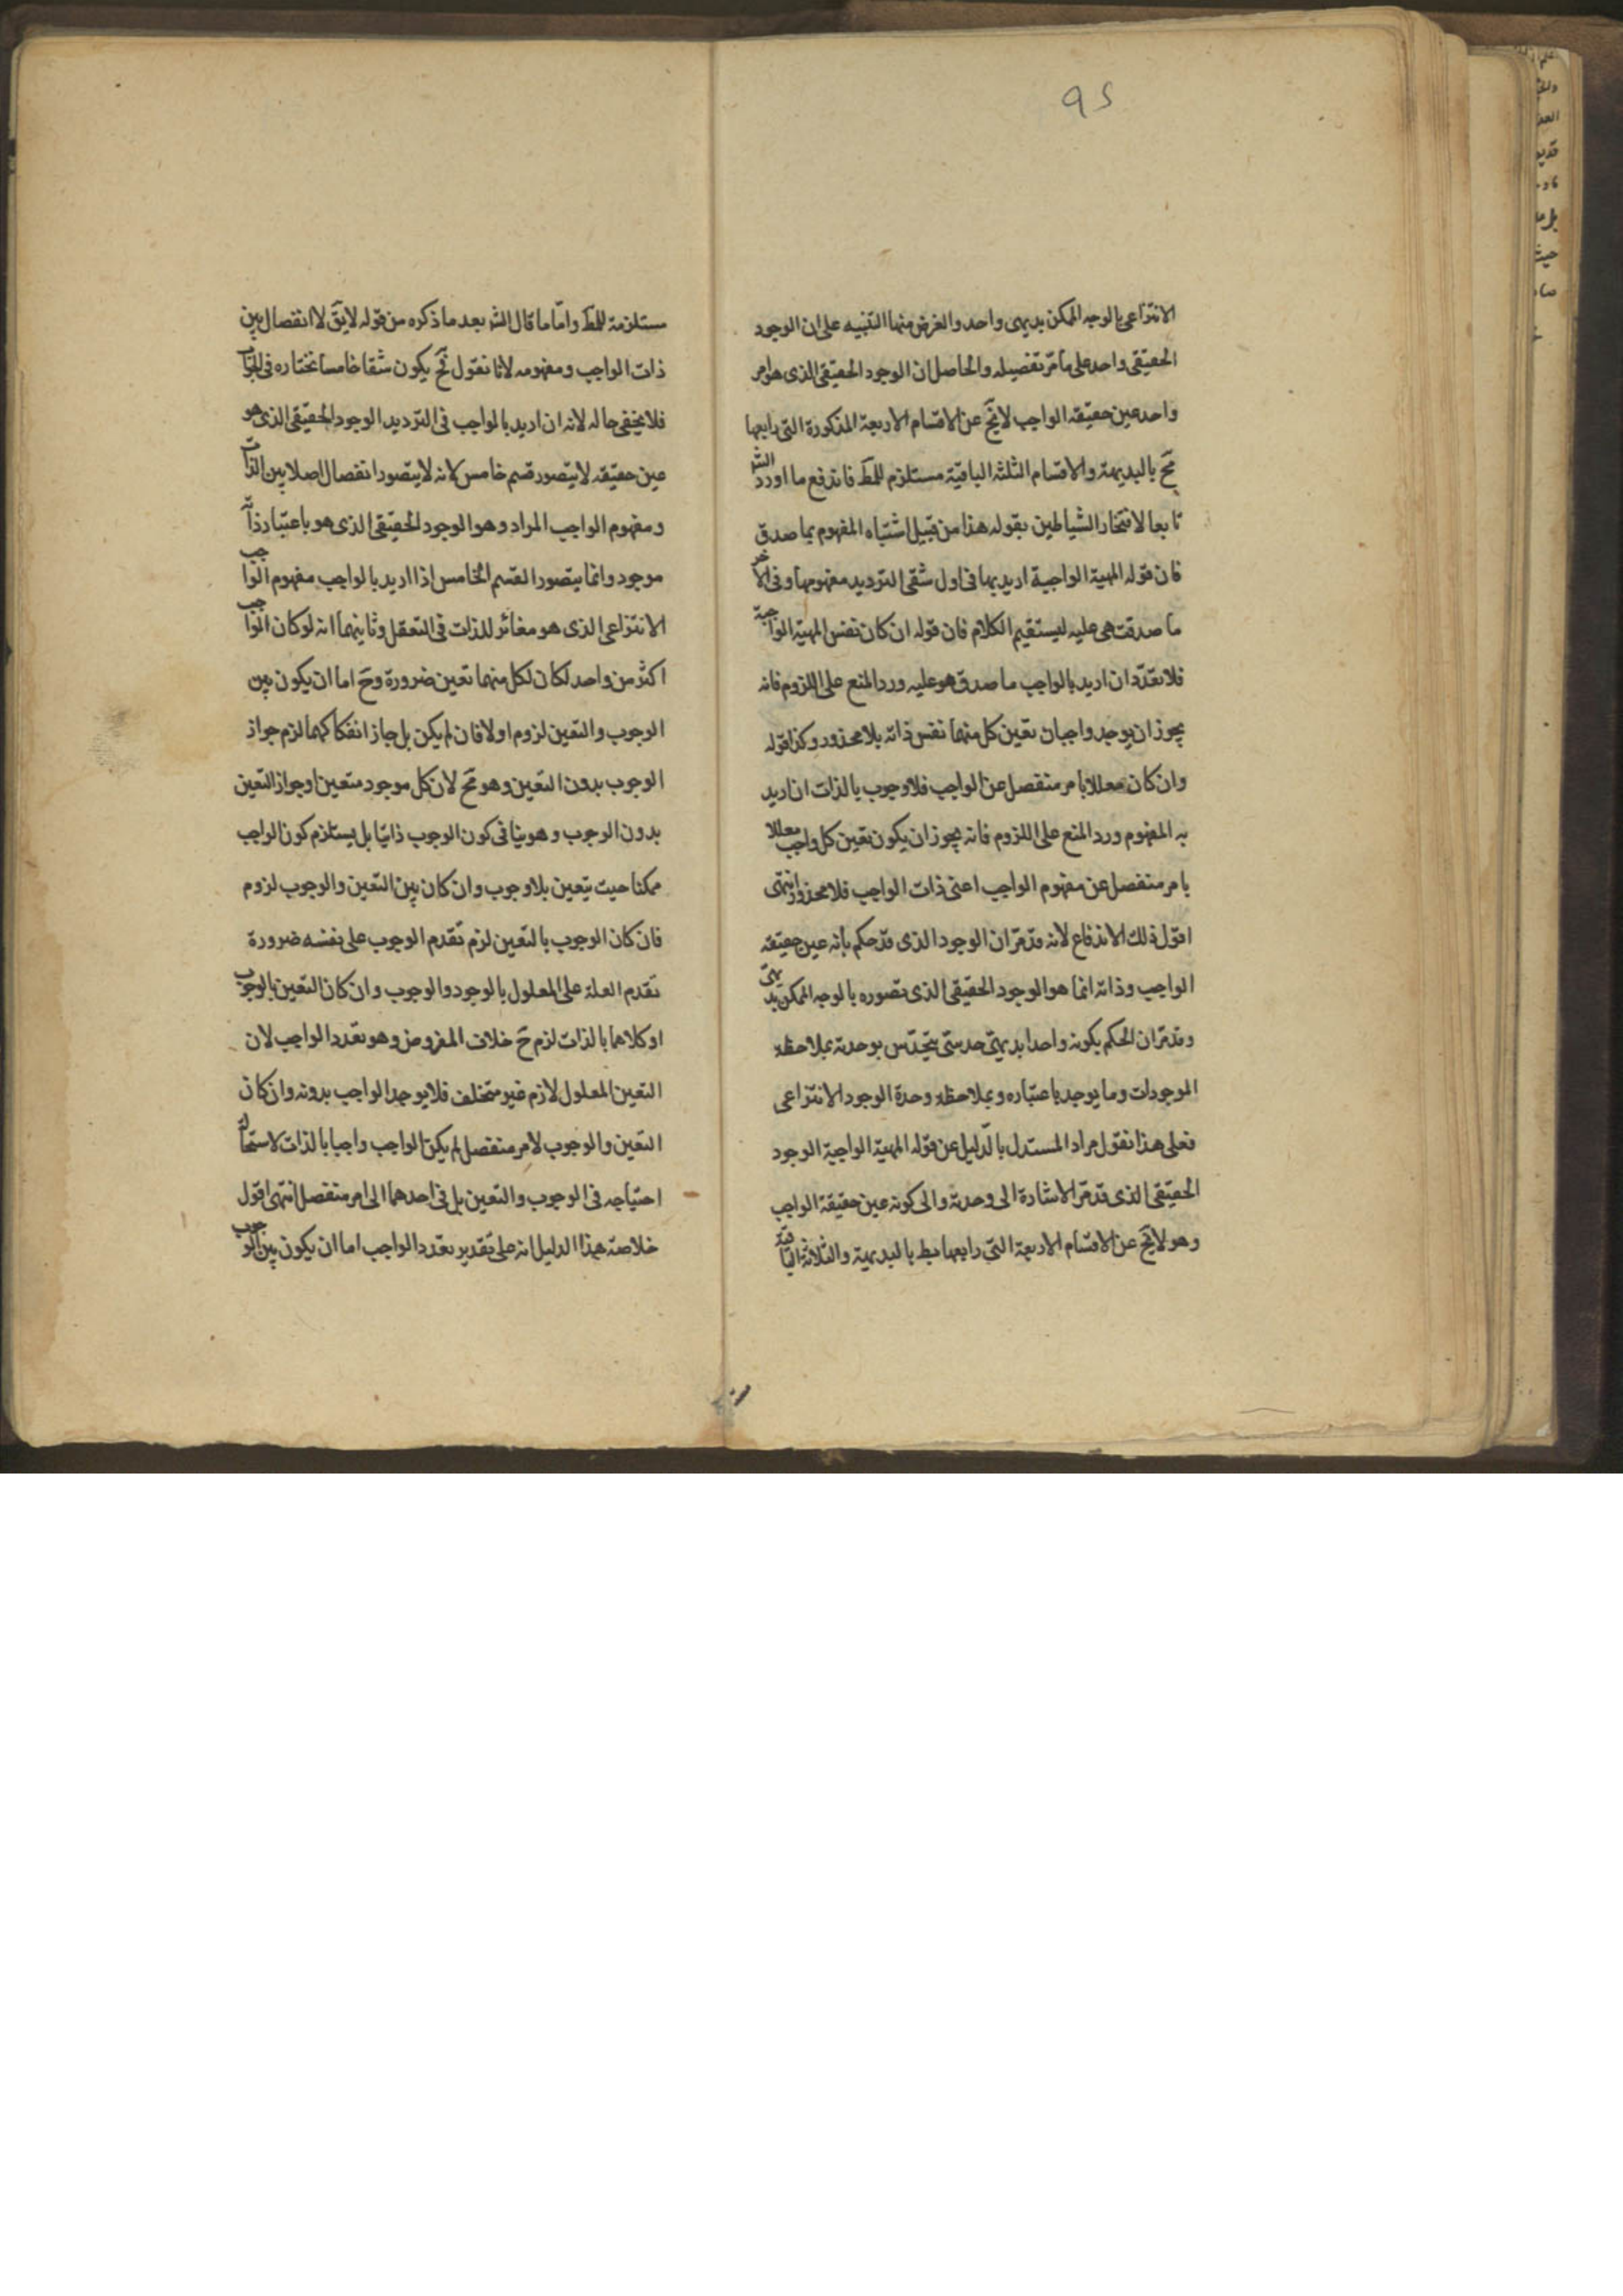 ٩٥
الانتزاعى بالوجه الممكن بديهى واحد والغرض منها التنبيه على ان الوجود
الحقيقى واحد على ما مرّ تفصيله والحاصل ان الوجود الحقيقى الذى هو امر
واحد عين حقيقه الواجب لا يخ عن الاقسام الاربعة المذكورة التى رابعها
مح بالبديهة والاقسام الثلثه الباقية مستلزم للمط فاندفع ما اورد الشه
تابعا لافتخار الشياطين بقوله هذا من قبيل اشتباه المفهوم بما صدق
فان قوله المهية الواجبة اريد بها فى اول شقى الترديد مفهومها وفى الآخر
ما صدقت هى عليه ليستقيم الكلام فان قوله ان كان نفس المهية الواجبة
فلا تعدّد ان اريد بالواجب ما صدق هو عليه ورد المنع على اللزوم فانه
يجوز ان يوجد واجبان تعين كل منهما نفس ذاته بلا محذور وكذا قوله
وان كان معللا بامر منفصل عن الواجب فلا وجوب بالذات ان اريد
به المفهوم ورد المنع على اللزوم فانه يجوز ان يكون تعين كل واجب معللا
بامر منفصل عن مفهوم الواجب اعنى ذات الواجب فلا محذور انتهى
اقول ذلك الاندفاع لانه قد مرّ ان الوجود الذى قد حكم بانه عين حقيقه
الواجب وذاته انما هو الوجود الحقيقى الذى تصوره بالوجه الممكن بديهىّ
وقد مرّ ان الحكم بكونه واحدا بديهىّ حدسىّ يتحدّس بوحدته بملاحظه
الموجودات وما يوجد باعتباره وبملاحظه وحدة الوجود الانتزاعى
فعلى هذا نقول مراد المستدل بالدليل عن قوله المهية الواجبة الوجود
الحقيقى الذى قد مرّ الاشارة الى وحدته والى كونه عين حقيقة الواجب
وهو لا يخ عن الاقسام الاربعة التى رابعها بط بالبديهية والثلاثة الباقية
مستلزمة للمط وامّا ما قال الشه بعد ما ذكره من قوله لا يقّ لا انفصال بين
ذات الواجب ومفهومه لانا نقول فح يكون شقا خامسا نختاره فى الجواب
فلا يخفى حاله لانه ان اريد بالواجب فى الترديد الوجود الحقيقى الذى هو
عين حقيقه لا يتصور قسم خامس لانه لا يتصور انفصال اصلا بين الذات
ومفهوم الواجب المراد وهو الوجود الحقيقى الذى هو باعتبار ذاته
موجود وانما يتصور القسم الخامس اذا اريد بالواجب مفهوم الواجب
الانتزاعى الذى هو مغائر للذات فى التعقل وثانيهما انه لو كان الواجب
اكثر من واحد لكان لكل منهما تعين ضرورة وح اما ان يكون بين
الوجوب والتعين لزوم او لا فان لم يكن بل جاز انفكاكهما لزم جواز
الوجوب بدون التعين وهو مح لان كل موجود متعين او جواز التعين
بدون الوجوب وهو ينافى كون الوجوب ذاتيا بل يستلزم كون الواجب
ممكنا حيت يتعين بلا وجوب وان كان بين التعين والوجوب لزوم
فان كان الوجوب بالتعين لزم تقدم الوجوب على نفسه ضرورة
تقدم العلة على المعلول بالوجود والوجوب وان كان التعين بالوجوب
او كلاهما بالذات لزم ح خلاف المفروض وهو تعدد الواجب لان
التعين المعلول لازم غير متخلف فلا يوجد الواجب بدونه وان كان
التعين والوجوب لامر منفصل لم يكن الواجب واجبا بالذات لاستحالة
احتياجه فى الوجوب والتعين بل فى احدهما الى امر منفصل انتهى اقول
خلاصة هذا الدليل انه على تقدير تعدد الواجب اما ان يكون بين الوجوب